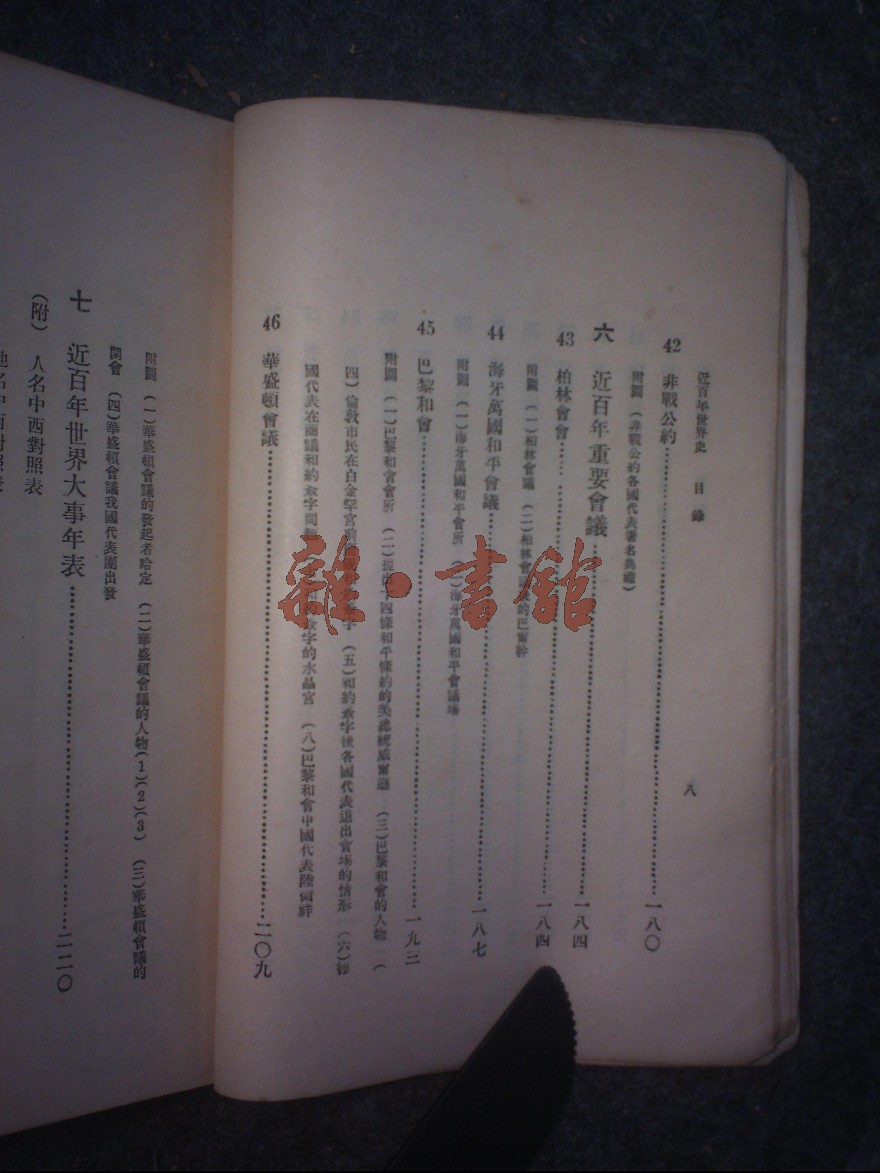 近百年世界史 目錄
八
42 非戰公約……一八〇
附圖 (非戰公約各國代表署名典禮)
六 近百年重要會議……一八四
43 柏林會會……一八四
附圖 (一)柏林會議 (二)柏林會 的巴爾幹
44 海牙萬國和平會議……一八七
附圖 (一)海牙萬國和平會所 (二)海牙萬國和平會議場
45 巴黎和會……一九三
附圖 (一)巴黎和會會所 (二)提 十四條和平條約的美總統威爾遜 (三)巴黎和會的人物 (
四)倫敦市民在白金 宮前 字 (五)和約簽字後各國代表退出會場的情形 (六)
國代表在商議和約簽字問題 簽字的水晶宮 (八)巴黎和會中國代表陸 祥
46 華盛頓會議……二〇九
附圖 (一)華盛頓會議的發起者哈定 (二)華盛頓會議的人物(1)(2)(3) (三)華盛頓會議的
開會 (四)華盛頓會議我國代表團出發
七 近百年世界大事年表……二二〇
(附) 人名中西對照表
地名中西對照表
雜·書館